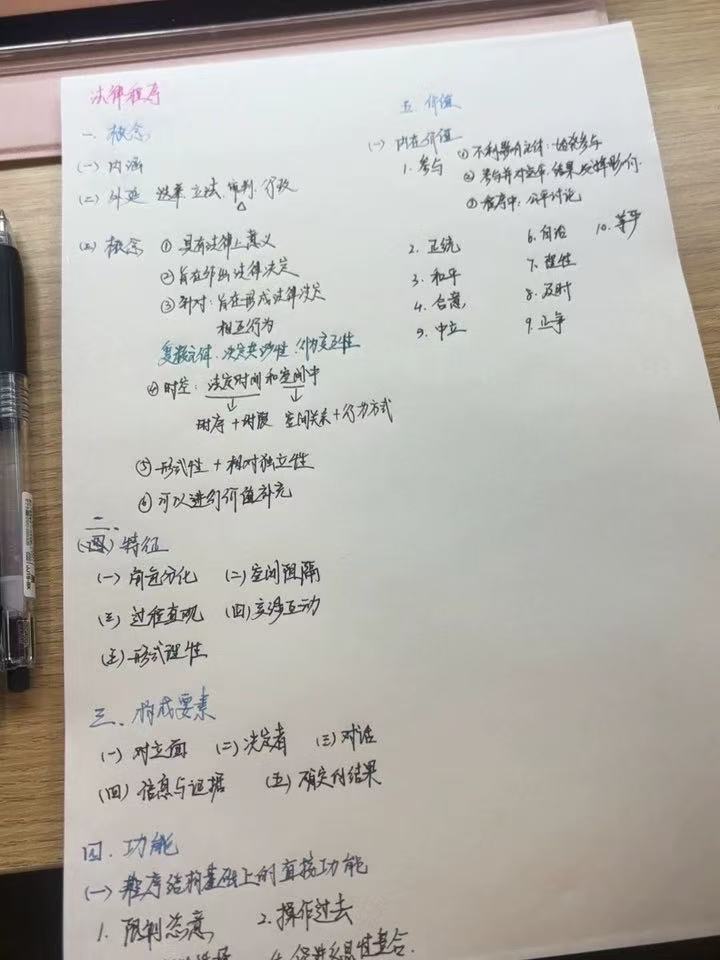 法律程序
一. 概念
(一) 内涵
(二) 外延 选举. 立法. 审判. 行政
(三) 概念 ① 具有法律上意义
② 旨在作出法律决定
③ 针对: 旨在形成法律决定
相互行为
复数主体. 决定共涉性. 行为交互性
④ 时空: 法定时间和空间中
时序+时限 空间关系+行为方式
⑤ 形式性+相对独立性
⑥ 可以进行价值补充
二.
特征
(一) 角色分化 (二) 空间阻隔
(三) 过程直观 (四) 交涉互动
(五) 形式理性
三. 构成要素
(一) 对立面 (二) 决定者 (三) 对话
(四) 信息与证据 (五) 确定的结果
四. 功能
(一) 程序结构基础上的直接功能
1. 限制恣意 2. 操作过去
五. 价值
(一) 内在价值
1. 参与 ① 不利影响主体:
② 参与并对选举. 结果 影响.
③ 程序中: 公平讨论
2. 正统 6. 自治 10. 等平
3. 和平 7. 理性
4. 合意 8. 及时
5. 中立 9. 正争